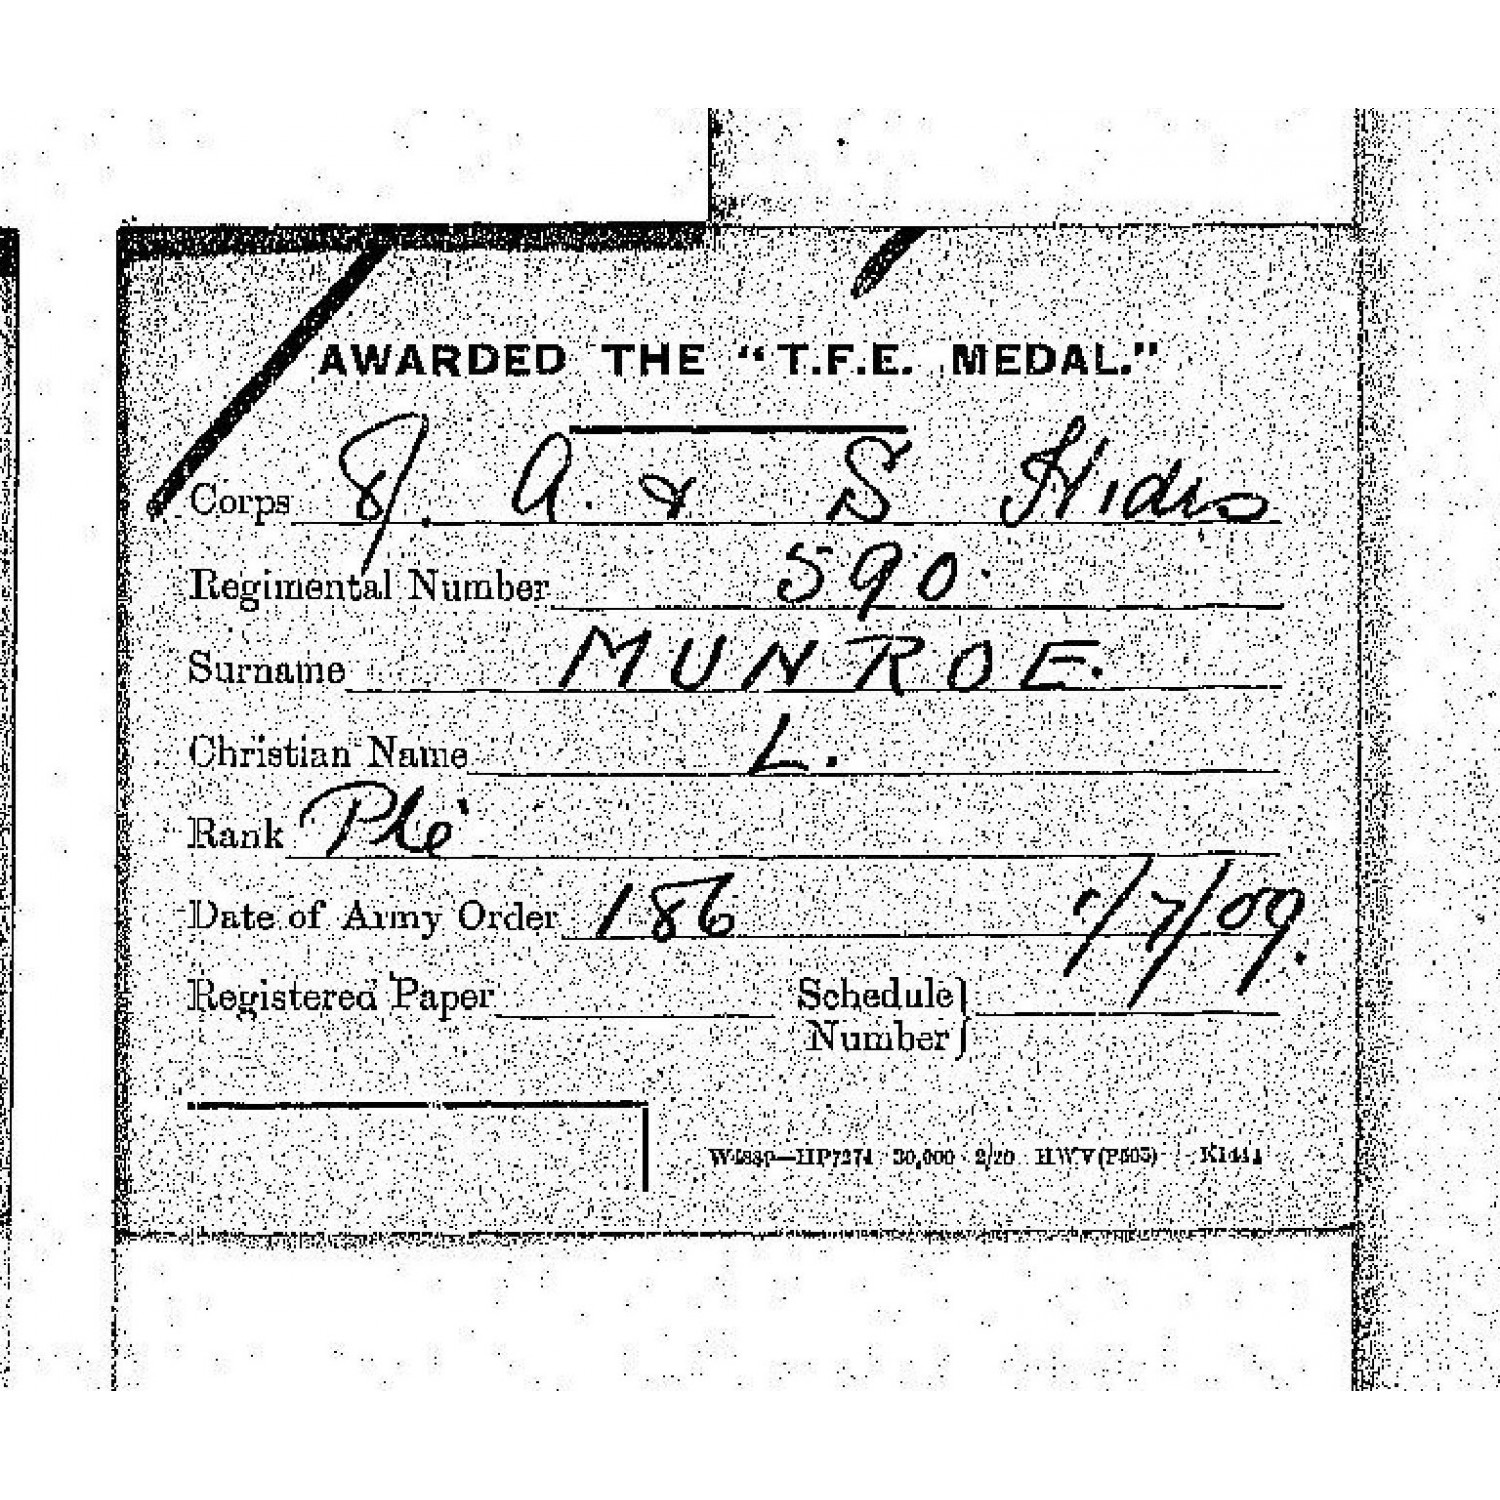 AWARDED THE "T.F.E. MEDAL."
Corps 8/. A. & S Hidrs
Regimental Number 590.
Surname MUNROE.
Christian Name L.
Rank Pte
Date of Army Order 186 1/7/09.
Registered Paper Schedule Number
30,000 2/20 HWV(P503)